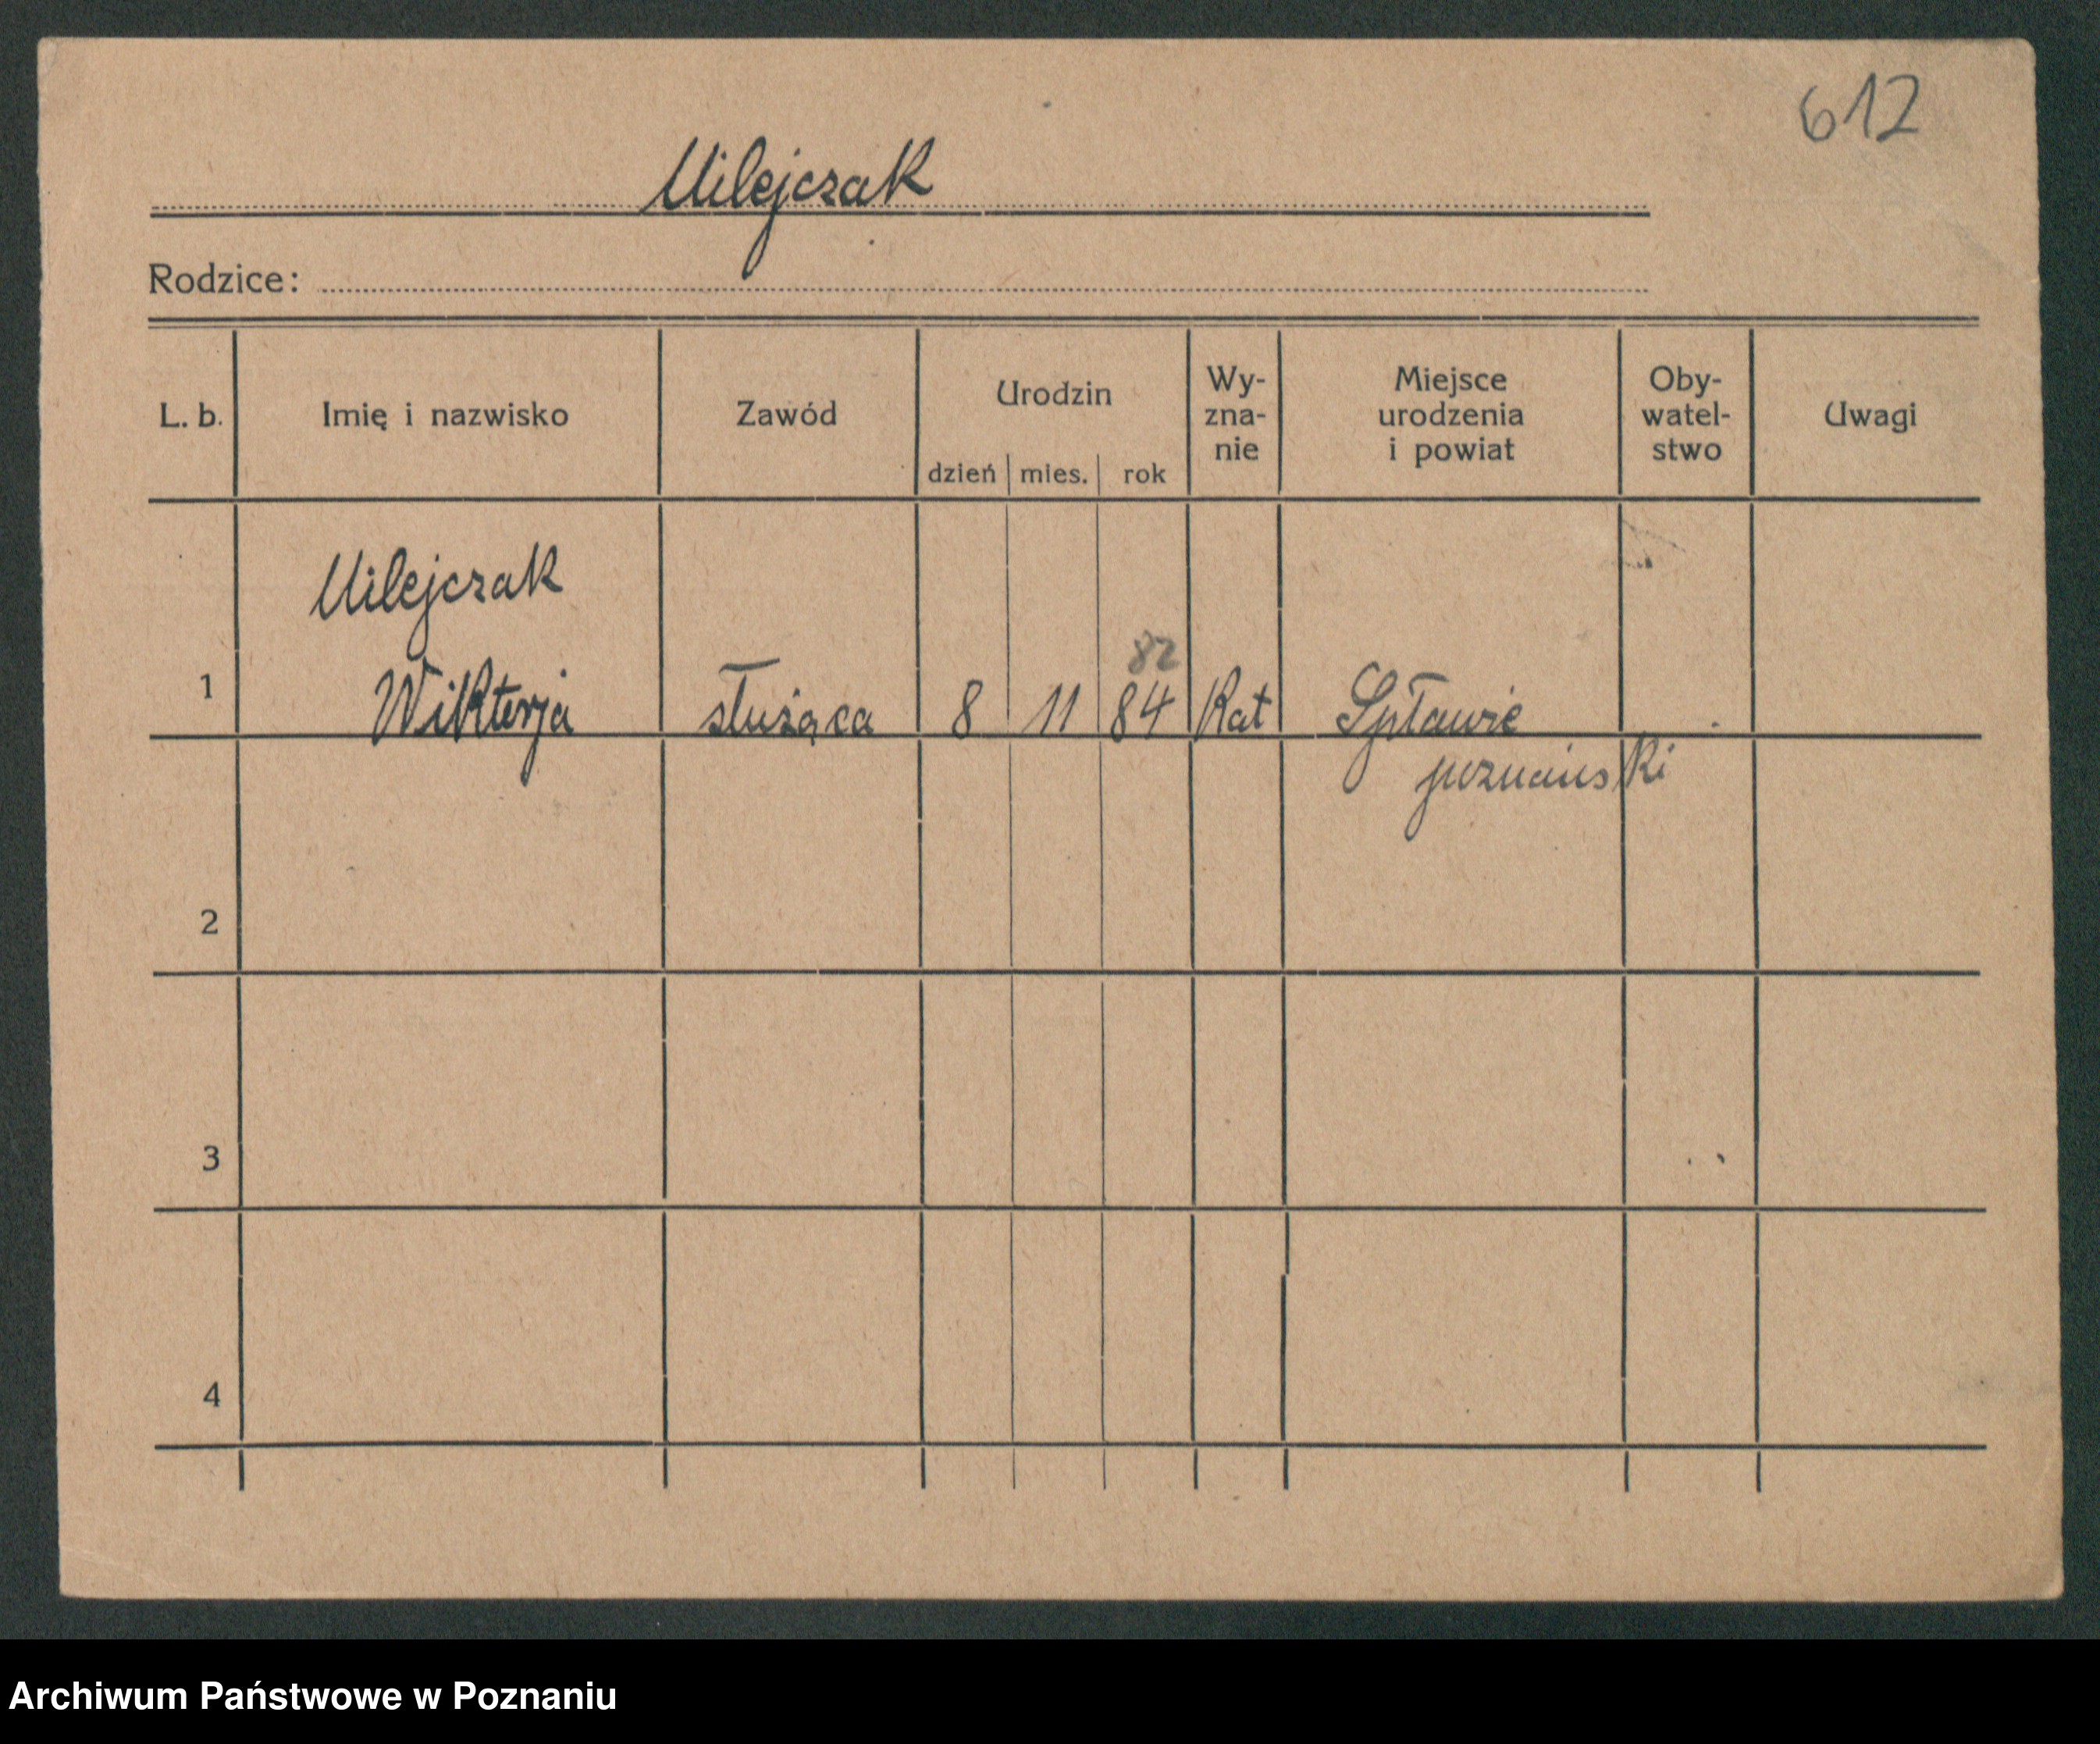 612
Milejczak
Rodzice:
L. b. Imię i nazwisko Zawód Urodzin dzień mies. rok Wy-zna-nie Miejsce urodzenia i powiat Oby-watel-stwo Uwagi
Milejczak
82
1 Wiktorja służąca 8 11 84 Kat Spławie
poznański
2
3
4
Archiwum Państwowe w Poznaniu